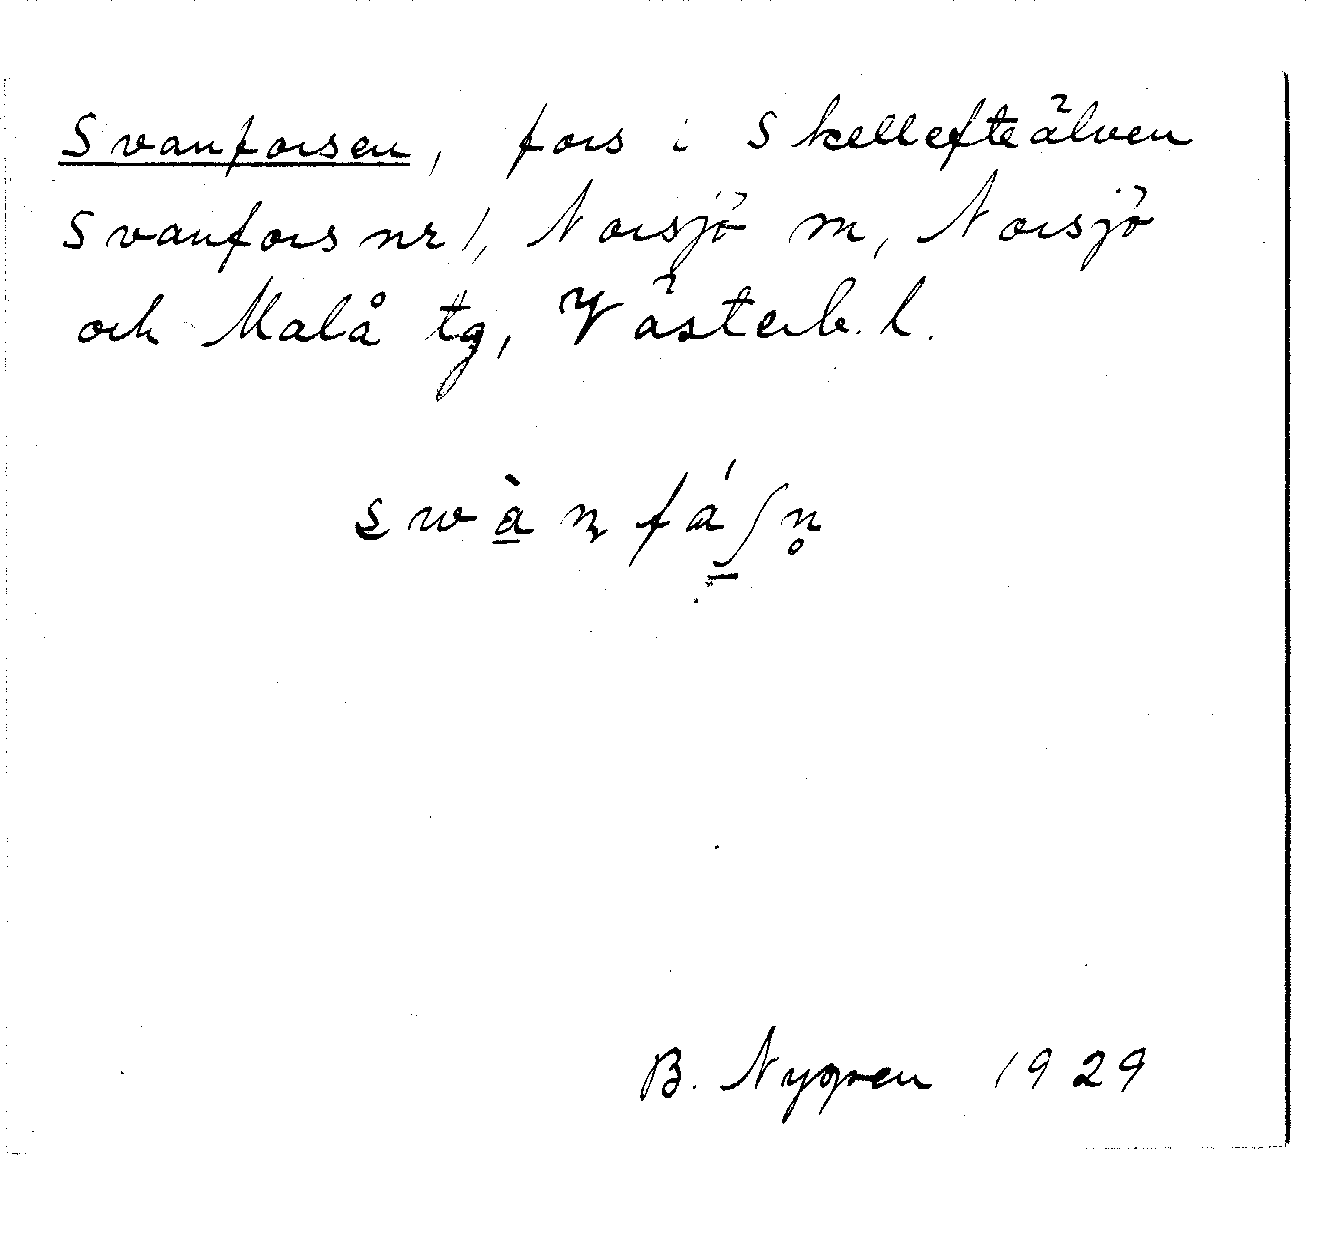 Svanforsen, fors i Skellefteälven
Svanfors nr 1, Norsjö m, Norsjö
och Malå tg, Västerb. l.
swànfáʃn̥
B. Nygren 1929